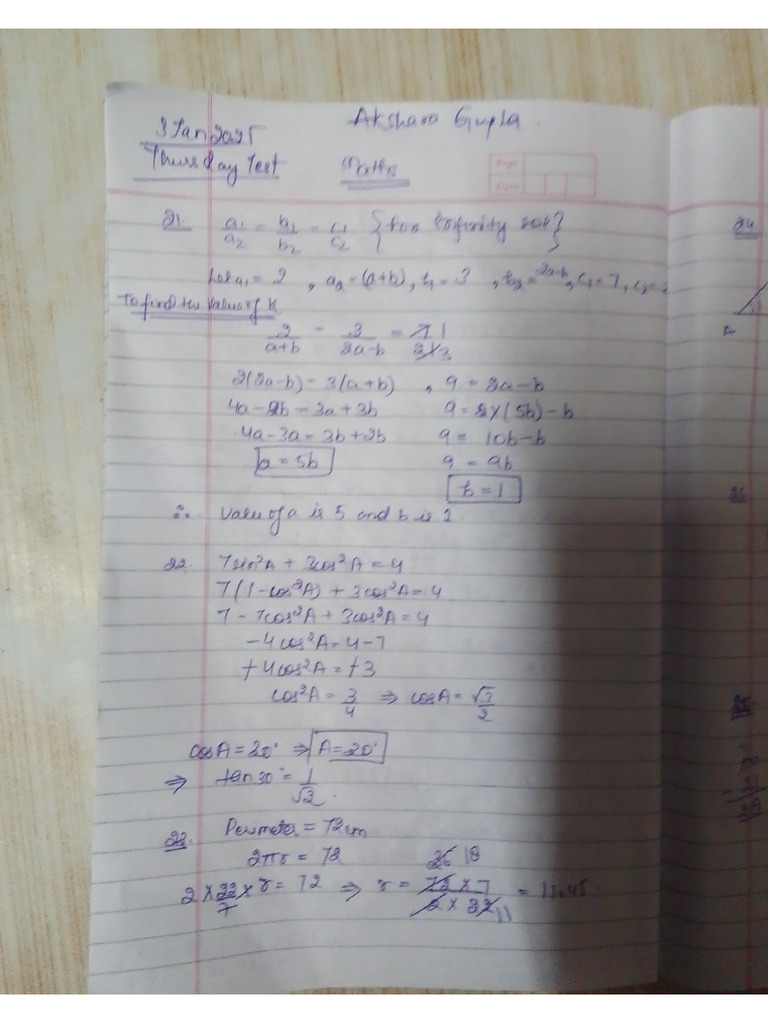 Akshara Gupta
3 Jan 2025
Thursday Test
Maths
Page
Date
21. a₁/a₂ = b₁/b₂ = c₁/c₂ {for infinity sol}
Let a₁ = 2, a₂ = (a+b), b₁ = 3, b₂ = 2a-b, c₁ = 7, c₂ =
To find the value of K
2/(a+b) = 3/(2a-b) = 7/21 1/3
2(2a-b) = 3(a+b) , 9 = 2a-b
4a-2b = 3a+3b 9 = 2×(5b)-b
4a-3a = 3b+2b 9 = 10b-b
a = 5b 9 = 9b
b = 1
∴ Value of a is 5 and b is 1
22. 7sin²A + 3cos²A = 4
7(1-cos²A) + 3cos²A = 4
7-7cos²A + 3cos²A = 4
-4cos²A = 4-7
+4cos²A = +3
cos²A = 3/4 ⇒ cosA = √3/2
cosA = 30° ⇒ A = 30°
⇒ tan30° = 1/√3
23. Perimeter = 72cm
2πr = 72
2 × 22/7 × r = 72 ⇒ r = 72 × 7 / 2 × 22 = 11.45
36 18
11
24